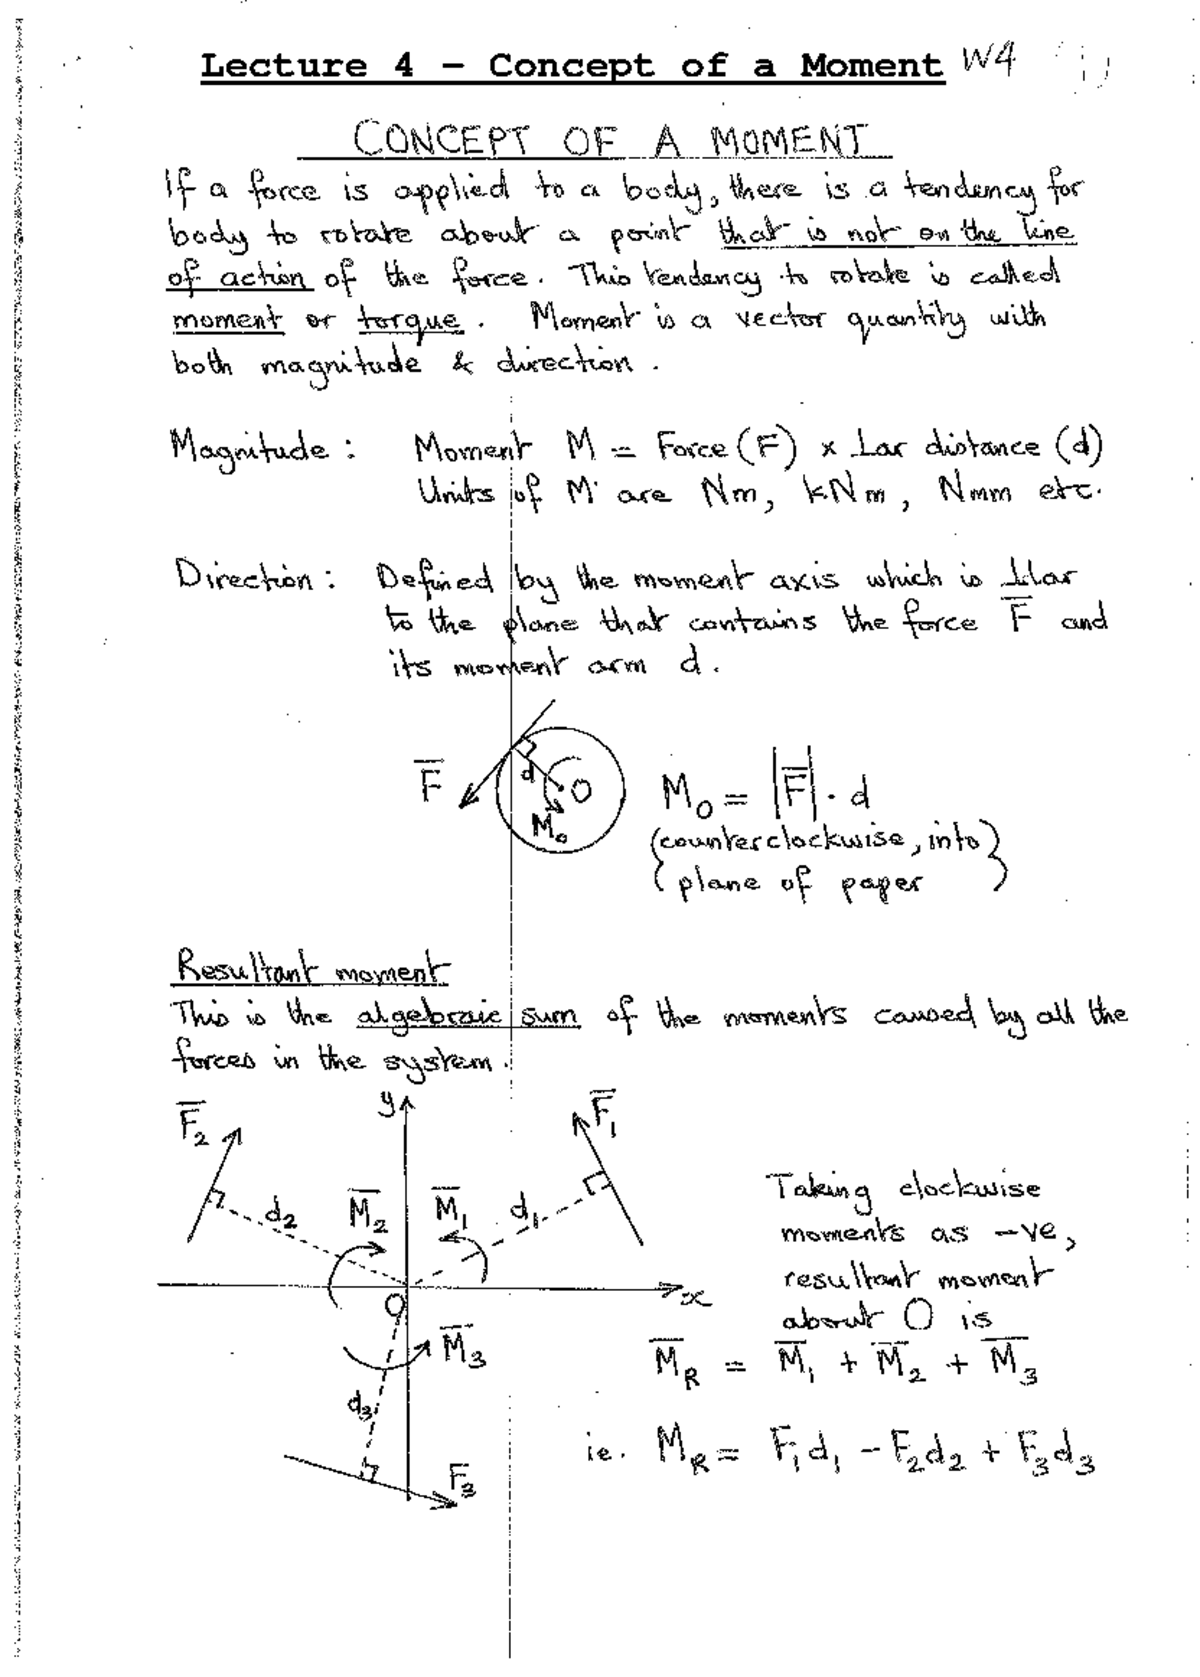 Lecture 4 – Concept of a Moment W4
CONCEPT OF A MOMENT
If a force is applied to a body, there is a tendency for
body to rotate about a point that is not on the line
of action of the force. This tendency to rotate is called
moment or torque. Moment is a vector quantity with
both magnitude & direction.
Magnitude: Moment M = Force (F) x ⊥ar distance (d)
Units of M are Nm, kNm, Nmm etc.
Direction: Defined by the moment axis which is ⊥lar
to the plane that contains the force F̅ and
its moment arm d.
F̅ d O M₀
M₀ = |F̅| · d
(counterclockwise, into)
(plane of paper)
Resultant moment
This is the algebraic sum of the moments caused by all the
forces in the system.
F̅₂ y F̅₁
d₂ M̅₂ M̅₁ d₁
O x
M̅₃
d₃
F₃
Taking clockwise
moments as -ve,
resultant moment
about O is
M̅R = M̅₁ + M̅₂ + M̅₃
ie. MR = F₁d₁ - F₂d₂ + F₃d₃